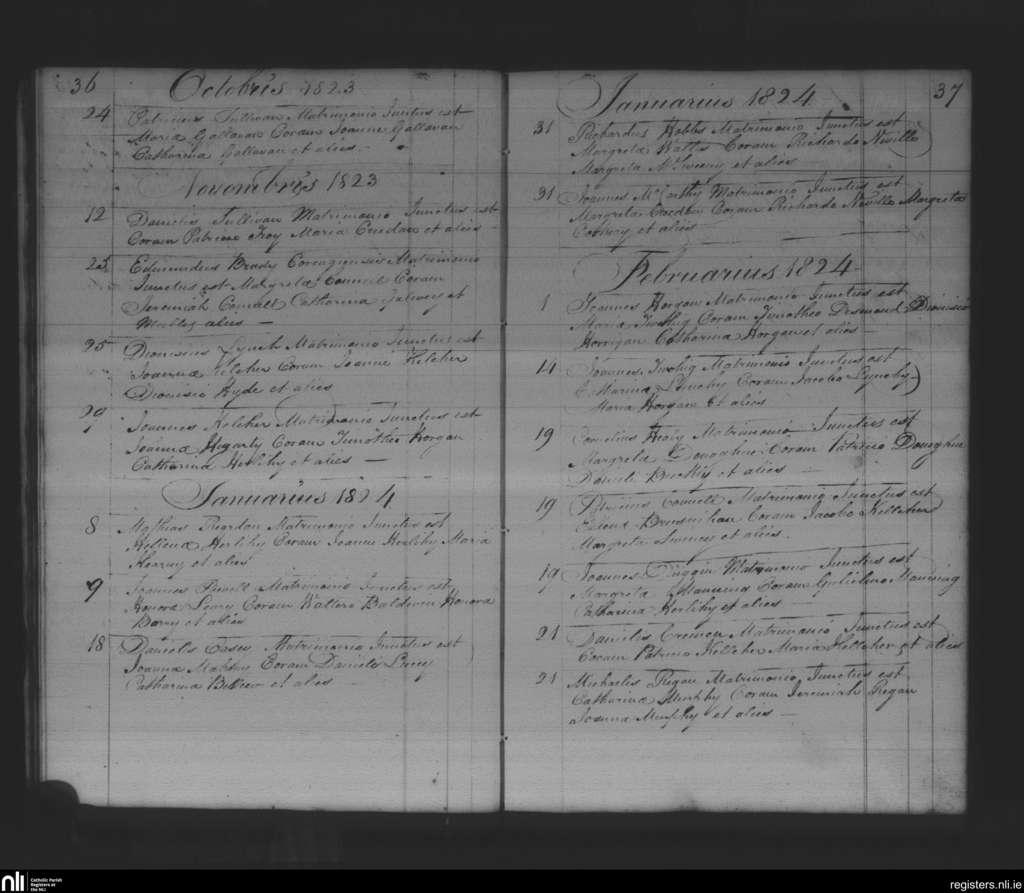 36
Octobris 1823
24 Patricius Sullivan Matrimonio Junctus est
Maria Gallavan Coram Joanne Gallavan
Catharina Gallavan et aliis
Novembris 1823
12 Daniels Sullivan Matrimonio Junctus est
Coram Patricio Troy Maria Creedan et aliis
25 Edmundus Brady Corcagiensis Matrimonio
Junctus est Margreta Connell Coram
Jeremiah Connell Catharina Galwey et
aliis
25 Dionisius Lynch Matrimonio Junctus est
Joanna Kelcher Coram Joanne Kelcher
Dionisio Hyde et aliis
29 Joannes Kelcher Matrimonio Junctus est
Joanna Hegarty Coram Timotheo Horgan
Catharina Herlihy et aliis
Januarius 1824
8 Mathias Reardon Matrimonio Junctus est
Heliena Herlihy Coram Joanne Herlihy Maria
Hearny et aliis
9 Joannes Matrimonio Junctus est
Honora Leary Coram Waltero Baldwin Honora
Barry et aliis
18 Daniels Casey Matrimonio Junctus est
Joanna Coram Daniele
Catharina et aliis
37
Januarius 1824
31 Richardus Hobbs Matrimonio Junctus est
Margreta Watts Coram Richardo Neville
Margreta McSweeny et aliis
31 Joannes McCarthy Matrimonio Junctus est
Margreta Creedon Coram Richardo Neville Margreta
et aliis
Februarius 1824
1 Joannes Horgan Matrimonio Junctus est
Maria Twohig Coram Timotheo Desmond Dionisio
Horrigan Catharina Horgan et aliis
14 Joannes Twohig Matrimonio Junctus est
Lynchy Coram Jacobo Lynchy
Maria Horgan et aliis
19 Cornelius Healy Matrimonio Junctus est
Margreta Donoghue Coram Patricio Donoghue
Daniele Buckley et aliis
19 Patricius Connell Matrimonio Junctus est
Brusnihan Coram Jacobo Kelleher
Margreta Sweeney et aliis
19 Joannes Duggin Matrimonio Junctus est
Margreta Manning Coram Gulielmo Manning
Catharina Herlihy et aliis
21 Daniels Cremen Matrimonio Junctus est
Coram Patricio Kelleher Maria Kelleher et aliis
21 Michaelis Regan Matrimonio Junctus est
Catharina Murphy Coram Jeremiah Regan
Joanna Murphy et aliis
nli Catholic Parish
Registers at
the NLI
registers.nli.ie